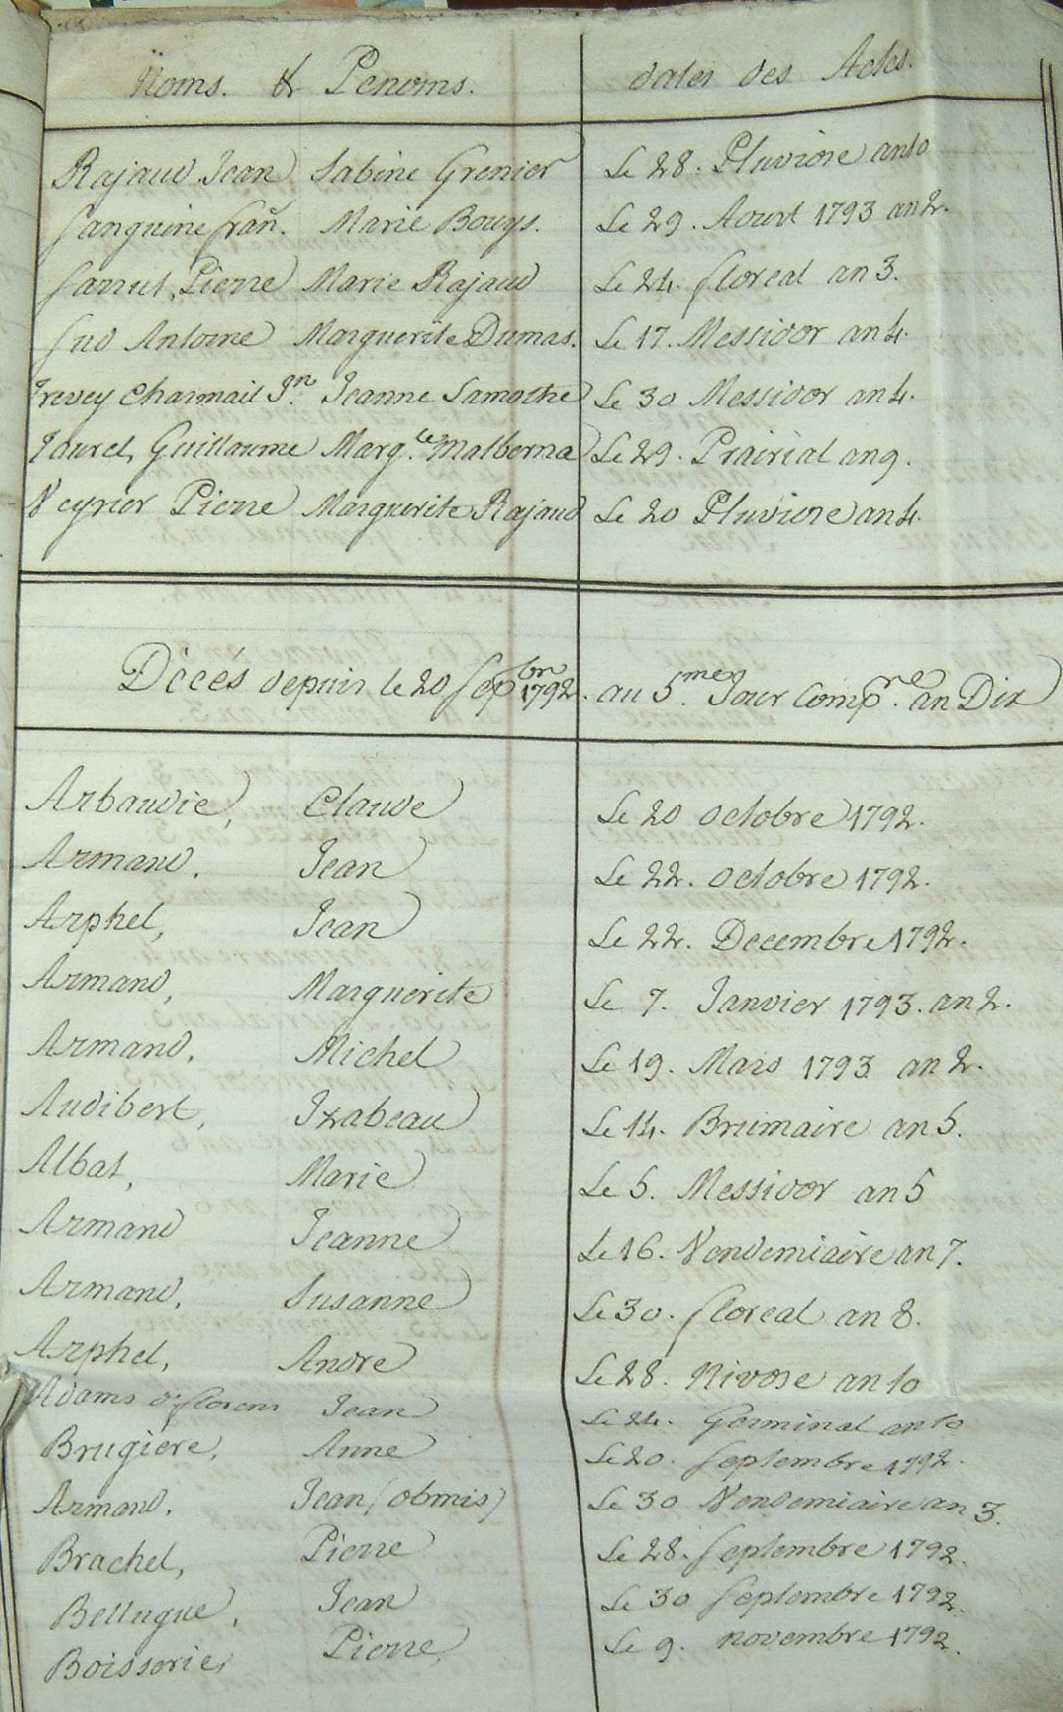 Noms. & Penoms. dates des Actes.
Rajaud Jean Sabine Grenier Le 28. Pluviose an 10
Sanguine fran. Marie Bouys. Le 29. Aoust 1793 an 2.
Sarrut, Pierre Marie Rajaud Le 24. floreal an 3.
Sud Antoine Marguerite Dumas. Le 17. Messidor an 4.
Trevey Charmail Jn. Jeanne Lamothe Le 30 Messidor an 4.
Taurel, Guillaume Marg.te Malberna Le 29. Prairial an 9.
Veyrier Pierre Marguerite Rajaud Le 20 Pluviose an 4.
Décés depuis le 20 Sepbre 1792. au 5.me Jour Comp.re an Dix
Arbaudie, Claude Le 20 octobre 1792.
Armand, Jean Le 22. octobre 1792.
Arphel, Jean Le 22. Decembre 1792.
Armand, Marguerite Le 7. Janvier 1793. an 2.
Armand, Michel Le 19. Mars 1793 an 2.
Audibert, Izabeau Le 14. Brumaire an 5.
Albat, Marie Le 5. Messidor an 5
Armand Jeanne Le 16. Vendemiaire an 7.
Armand, Susanne Le 30. floreal an 8.
Arphel, Andre Le 28. Nivose an 10
Adams Jean Le 24. Germinal an 10
Brugiere, Anne Le 20. Septembre 1792.
Armand. Jean (obmis) Le 30 Vendemiaire an 3.
Brachet, Pierre Le 28. Septembre 1792.
Bellugue, Jean Le 30 Septembre 1792.
Boisserie, Pierre Le 9. novembre 1792.